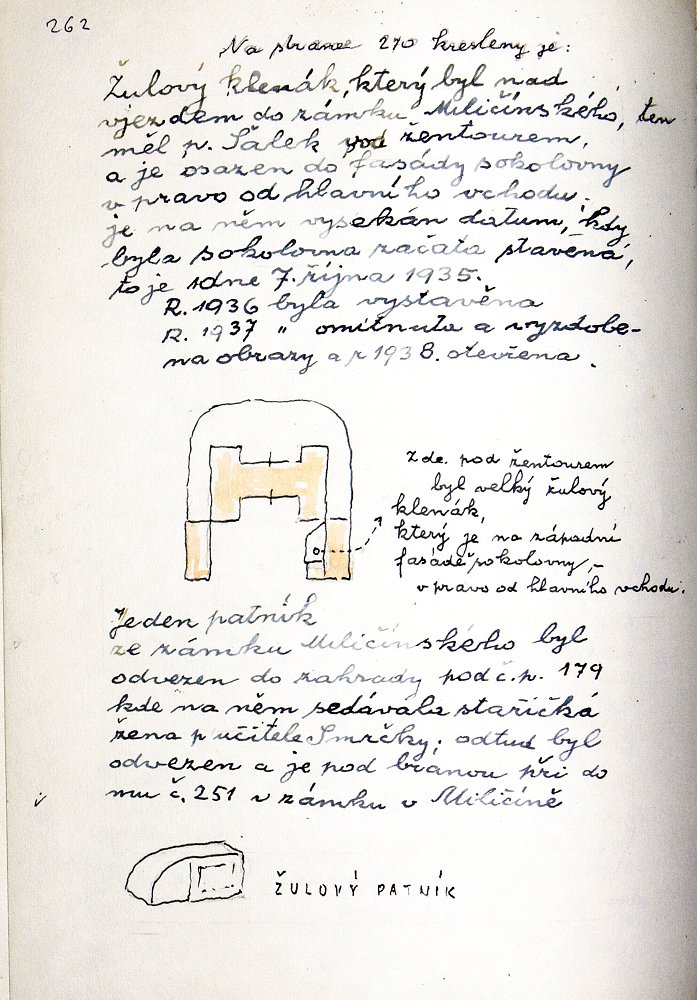 262
Na strane 270 kresleny je:
Žulový klenák, který byl nad
vjezdem do zámku Miličínského, ten
měl p. Šálek pod žentourem,
a je osazen do fasády sokolovny
v pravo od hlavního vchodu.
je na něm vysekán datum, kdy
byla sokolovna začata stavěná,
to je dne 7. října 1935.
R. 1936 byla vystavěna
R. 1937 " omítnuta a vyzdobe-
na obrazy a r 1938. otevřena.
zde. pod žentourem
byl velký žulový
klenák,
který je na západní
fasádě sokolovny,-
v pravo od hlavního vchodu.
Jeden patník
ze zámku Miličínského byl
odvezen do zahrady pod č.p. 179
kde na něm sedávála stařičká
žena p učitele Smrčky; odtud byl
odvezen a je pod branou při do
mu č. 251 v zámku v Miličíně
ŽULOVÝ PATNÍK